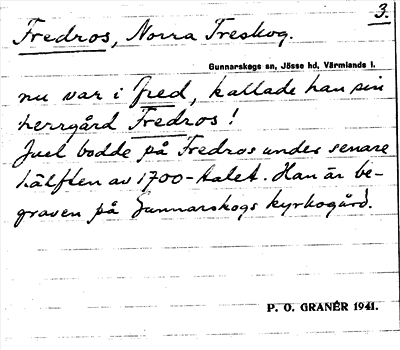 3.
Fredros, Norra Treskog.
Gunnarskogs sn, Jösse hd, Värmlands l.
nu var i fred, kallade han sin
herrgård Fredros!
Juel bodde på Fredros under senare
hälften av 1700-talet. Han är be-
graven på Gunnarskogs kyrkogård.
P. O. GRANÉR 1941.